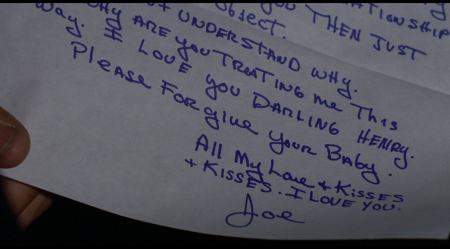 RELATIONSHIP
YOU THEN JUST
object.
NOT UNDERSTAND WHY.
WHY ARE YOU TREATING me THIS
Way. I LOVE YOU DARLING HENRY.
Please Forgive Your Baby.
All My Love + KiSSES
+ KISSES. I LOVE YOU.
Joe